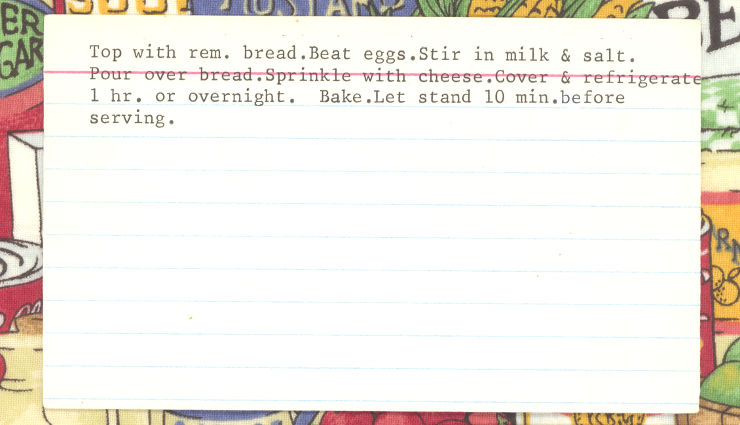 ER
GAR
SOUP
MUSTARD
BE
Top with rem. bread.Beat eggs.Stir in milk & salt.
Pour over bread.Sprinkle with cheese.Cover & refrigerate
1 hr. or overnight.  Bake.Let stand 10 min.before
serving.